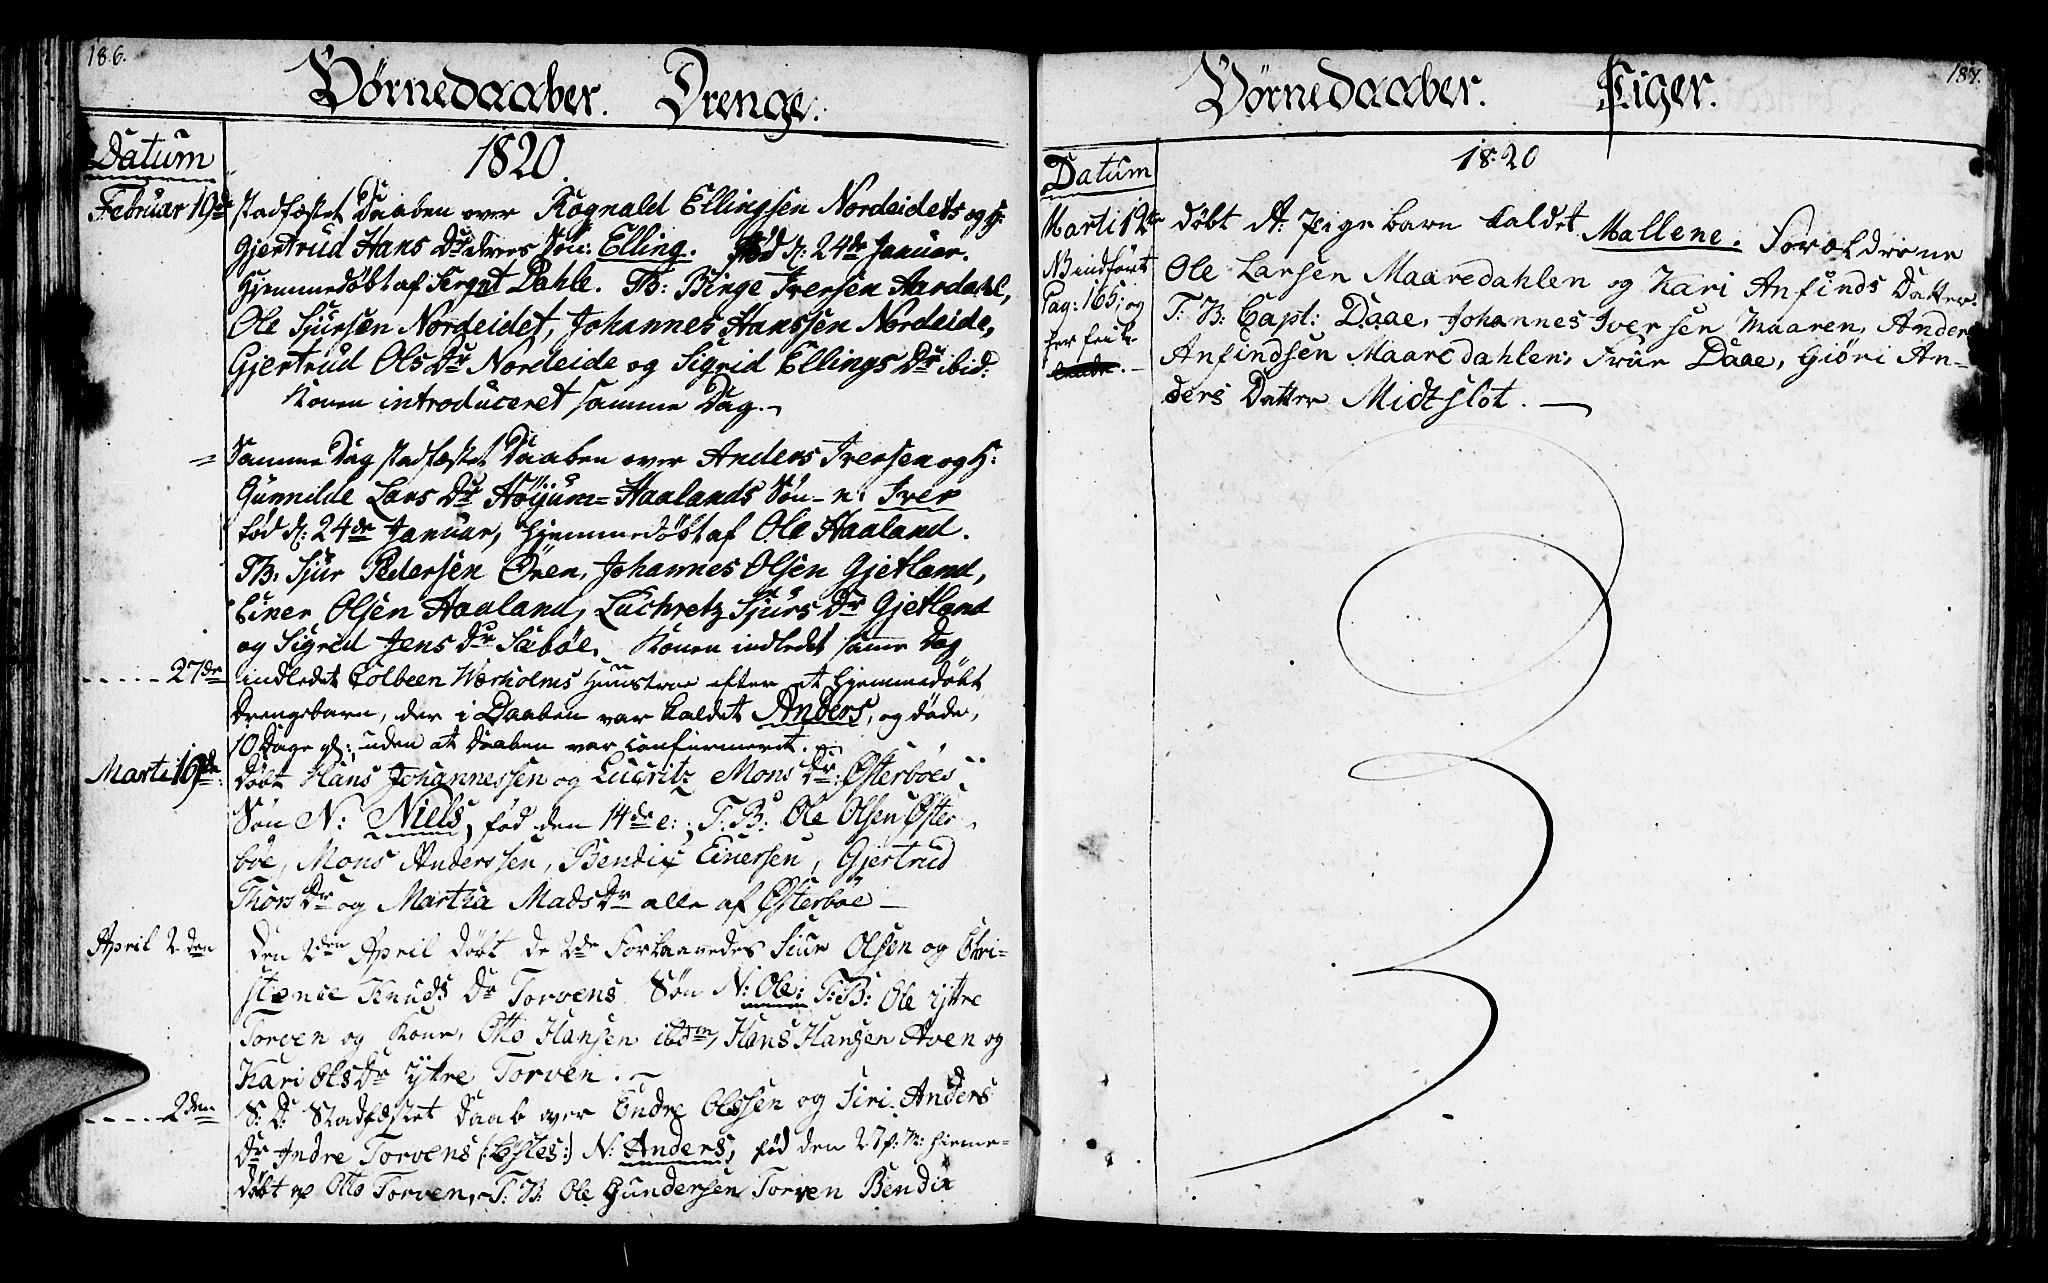 186.
Börnedaaber. Drenge.
Datum
1820.
Februar 19de stadfæstet Daaben over Rognald Ellingsen Nordeidets og H:
Gjertrud Hans Dr deres Sön: Elling. fød d: 24de Januar.
Hjemmedöbt af Sergnt Dahle. TB: Binge Iversen Aardahl,
Ole Sjursen Nordeidet, Johannes Hanssen Nordeide,
Gjertrud Ols Dr Nordeide og Sigrid Ellings Dr ibid:
Konen introduceret samme Dag.
= Samme Dag stadfæstet Daaben over Anders Iversen og H:
Gunnilde Lars Dr Höÿum-Haalands Sön- n: Iver
fød d: 24de Januar, hjemmedöbt af Ole Haaland.
TB: Sjur Pedersen Ören, Johannes Olsen Gjetland,
Einer Olsen Haaland, Luchretz Sjurs Dr Gjetland
og Sigrid Jens Dr Sæböe. Konen indledet samme Dag
27de indledet Colbeen Værholms Hunstroe efter et hjemmedöbt
Drengebarn, der i Daaben var kaldet Anders, og döde,
10 Dage gl: uden at Daaben var confirmeret.
Marti 19de: Döbt Hans Johannessen og Lucritz Mons Dr: Østerböes
Sön N: Niels, fød den 14de e: T.B: Ole Olsen Øster
böe, Mons Anderssen, Bendix Einersen, Gjertrud
Thors Dr og Martha Mads Dr alle af Østerböe
April 2den Den 2den April döbt de 2de Forhaavedes Siur Olsen og Chri-
stence Knuds Dr Torvens Sön N: Ole: T:B: Ole ÿttre
Torven og Kone, Otto Hansen ibdm, Hans Hansen Aven og
Kari Ols Dr ÿttre Torven.
2den S: D: Stadfæstet Daab over Endre Olssen og Siri Anders
Dr Indre Torvens N: Anders, fød den 27 f: M: hieme-
döbt af Otto Torven, T: B: Ole Gundersen Torven Bendix
187.
Börnedaaber. Piger.
Datum
1820
Marti 12te döbt et Pigebarn kaldet Mallene. Forældrene
NB indfört
Pag: 165, og
her
Ole Larsen Maaredahlen og Kari Anfinds Datter.
T: B: Capt: Daae, Johannes Iversen Maaren, Anders
Anfindsen Maaredahlen, Frue Daae, Giöri An-
ders Datter Midtslot.